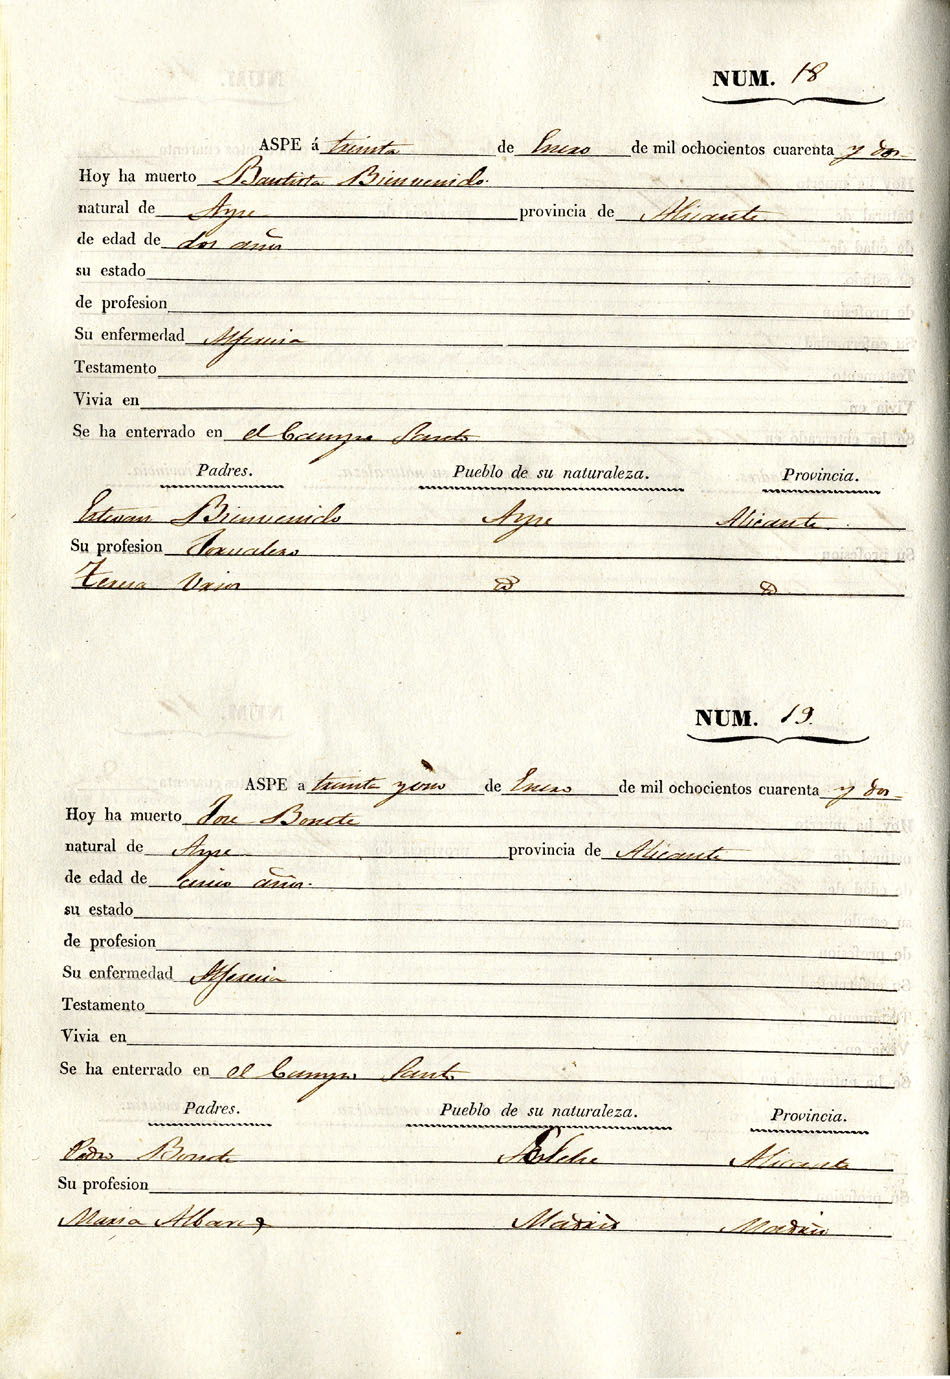 NUM. 18
ASPE á treinta de Enero de mil ochocientos cuarenta y dos=
Hoy ha muerto Bautista Bienvenido.
natural de Aspe provincia de Alicante
de edad de dos años
su estado
de profesion
Su enfermedad Alferecia
Testamento
Vivia en
Se ha enterrado en el Campo Santo
Padres. Pueblo de su naturaleza. Provincia.
Estevan Bienvenido Aspe Alicante.
Su profesion Jornalero
Teresa D D
NUM. 19.
ASPE a treinta y uno de Enero de mil ochocientos cuarenta y dos=
Hoy ha muerto Jose Bonete
natural de Aspe provincia de Alicante
de edad de cinco años.
su estado
de profesion
Su enfermedad Alferecia
Testamento
Vivia en
Se ha enterrado en el Campo Santo
Padres. Pueblo de su naturaleza. Provincia.
Pedro Bonete Elche Alicante
Su profesion
Maria Albarez Madrid Madrid